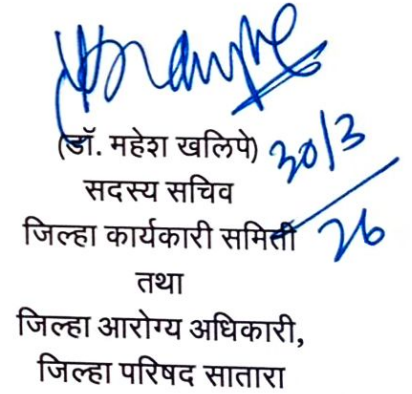 (डॉ. महेश खलिपे) 30/3
सदस्य सचिव
जिल्हा कार्यकारी समिती 26
तथा
जिल्हा आरोग्य अधिकारी,
जिल्हा परिषद सातारा